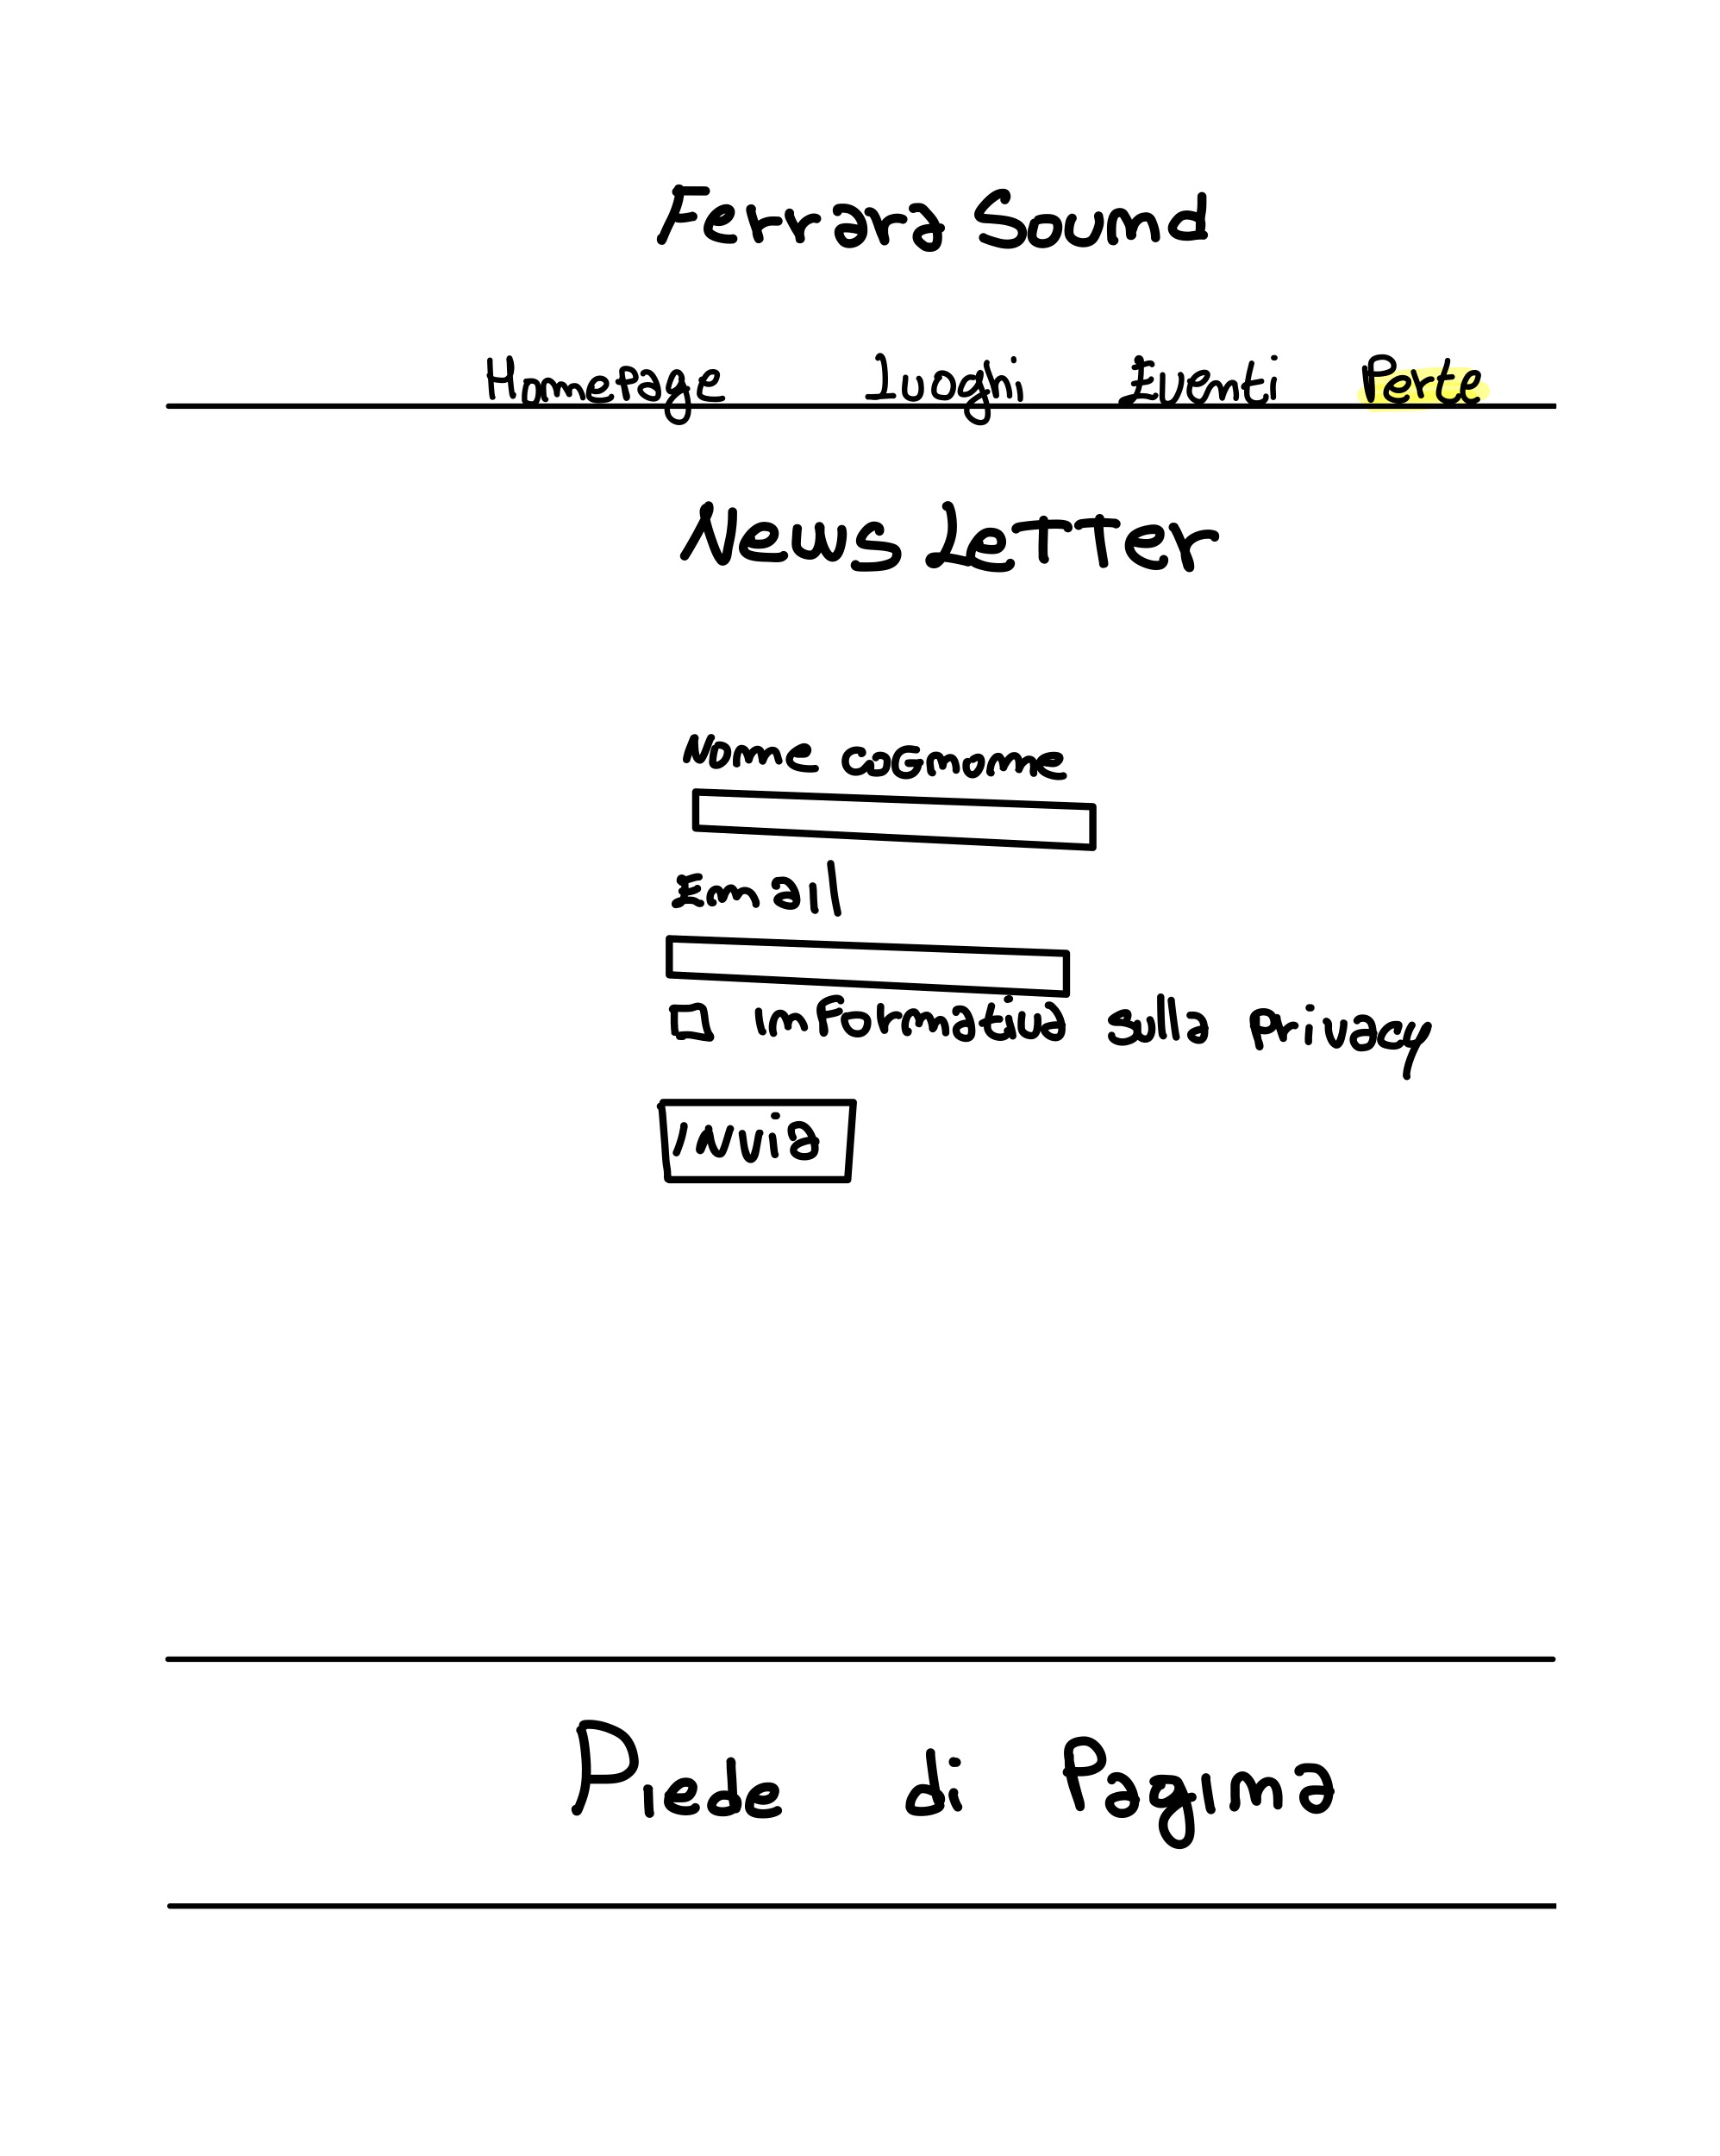 Ferrara Sound
Homepage Luoghi Eventi Perte
News Letter
Nome cognome
Email
informativa sulla privacy
Invia
Piede di Pagina